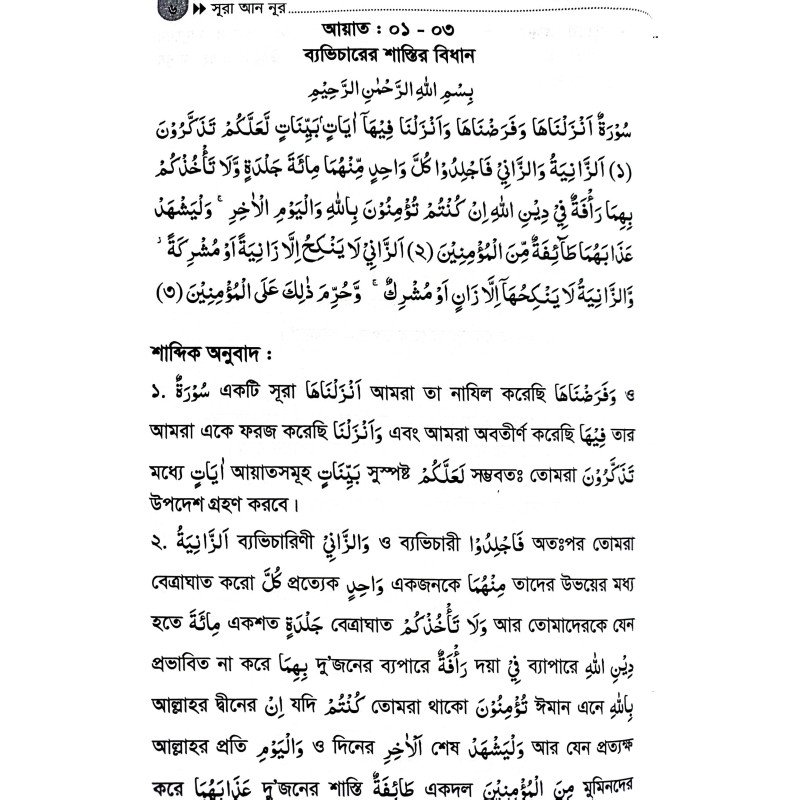 ৬ সূরা আন নূর
আয়াত : ০১ - ০৩
ব্যভিচারের শাস্তির বিধান
بِسْمِ اللهِ الرَّحْمٰنِ الرَّحِيْمِ
سُوْرَةٌ اَنْزَلْنَاهَا وَفَرَضْنَاهَا وَاَنْزَلْنَا فِيْهَآ اٰيَاتٍ ۢبَيِّنَاتٍ لَّعَلَّكُمْ تَذَكَّرُوْنَ
(১) اَلزَّانِيَةُ وَالزَّانِيْ فَاجْلِدُوْا كُلَّ وَاحِدٍ مِّنْهُمَا مِائَةَ جَلْدَةٍ وَّلَا تَأْخُذْكُمْ
بِهِمَا رَأْفَةٌ فِيْ دِيْنِ اللهِ اِنْ كُنْتُمْ تُؤْمِنُوْنَ بِاللهِ وَالْيَوْمِ الْاٰخِرِ ۚ وَلْيَشْهَدْ
عَذَابَهُمَا طَآئِفَةٌ مِّنَ الْمُؤْمِنِيْنَ (২) اَلزَّانِيْ لَا يَنْكِحُ اِلَّا زَانِيَةً اَوْ مُشْرِكَةً ۫
وَّالزَّانِيَةُ لَا يَنْكِحُهَآ اِلَّا زَانٍ اَوْ مُشْرِكٌ ۚ وَحُرِّمَ ذٰلِكَ عَلَى الْمُؤْمِنِيْنَ (৩)
শাব্দিক অনুবাদ :
১. سُوْرَةٌ একটি সূরা اَنْزَلْنَاهَا আমরা তা নাযিল করেছি وَفَرَضْنَاهَا ও
আমরা একে ফরজ করেছি وَاَنْزَلْنَا এবং আমরা অবতীর্ণ করেছি فِيْهَا তার
মধ্যে اٰيَاتٍ আয়াতসমূহ بَيِّنَاتٍ সুস্পষ্ট لَعَلَّكُمْ সম্ভবতঃ তোমরা تَذَكَّرُوْنَ
উপদেশ গ্রহণ করবে।
২. اَلزَّانِيَةُ ব্যভিচারিণী وَالزَّانِيْ ও ব্যভিচারী فَاجْلِدُوْا অতঃপর তোমরা
বেত্রাঘাত করো كُلَّ প্রত্যেক وَاحِدٍ একজনকে مِنْهُمَا তাদের উভয়ের মধ্য
হতে مِائَةَ একশত جَلْدَةٍ বেত্রাঘাত وَلَا تَأْخُذْكُمْ আর তোমাদেরকে যেন
প্রভাবিত না করে بِهِمَا দু'জনের ব্যপারে رَأْفَةٌ দয়া فِيْ ব্যাপারে دِيْنِ اللهِ
আল্লাহর দ্বীনের اِنْ যদি كُنْتُمْ তোমরা থাকো تُؤْمِنُوْنَ ঈমান এনে بِاللهِ
আল্লাহর প্রতি وَالْيَوْمِ ও দিনের اَلْاٰخِرِ শেষ وَلْيَشْهَدْ আর যেন প্রত্যক্ষ
করে عَذَابَهُمَا দু'জনের শাস্তি طَائِفَةٌ একদল مِنَ الْمُؤْمِنِيْنَ মুমিনদের